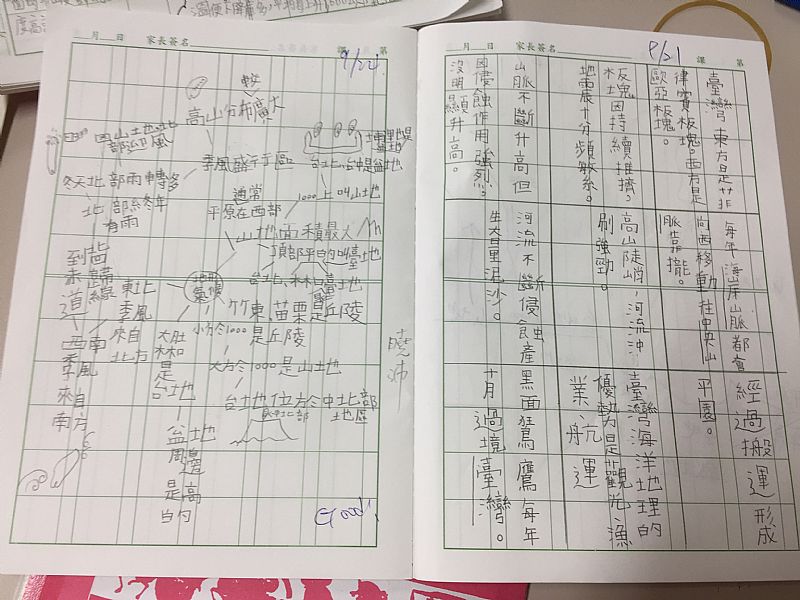 月　日　家長簽名　課　第
9/21
臺灣東方是菲
律賓板塊。西方是
歐亞板塊。
每年海岸山脈都會
向西移動往中央山
脈靠攏。
經過搬運形成
平園。
板塊因持續推擠，
地震十分頻繁。
高山陡峭，河流沖
刷強勁。
臺灣海洋地理的
優勢是觀光漁
業航運
山脈不斷升高但
因侵蝕作用強烈。
沒明顯升高。
河流不斷侵蝕產
生大量泥沙。
黑面鵟鷹每年
十月過境臺灣。
月　日　家長簽名　課　第
9/24
較
高山分布廣大
季風盛行區
台北、台中是盆地
冬天北部雨轉多
北部終年
有雨
通常
平原在西部
1000上叫山地
山地面積最大
頂部平的叫臺地
台北、林口是臺地
竹東、苗栗是丘陵
地形
氣候
小於1000是丘陵
大於1000是山地
台地位於中北部
中北部
地區
東北
季風
來自
北方
西南
季風
來自
南方
到赤道
大肚
林口
是
台地
盆地
周邊
是高
的
曉沛
Good!